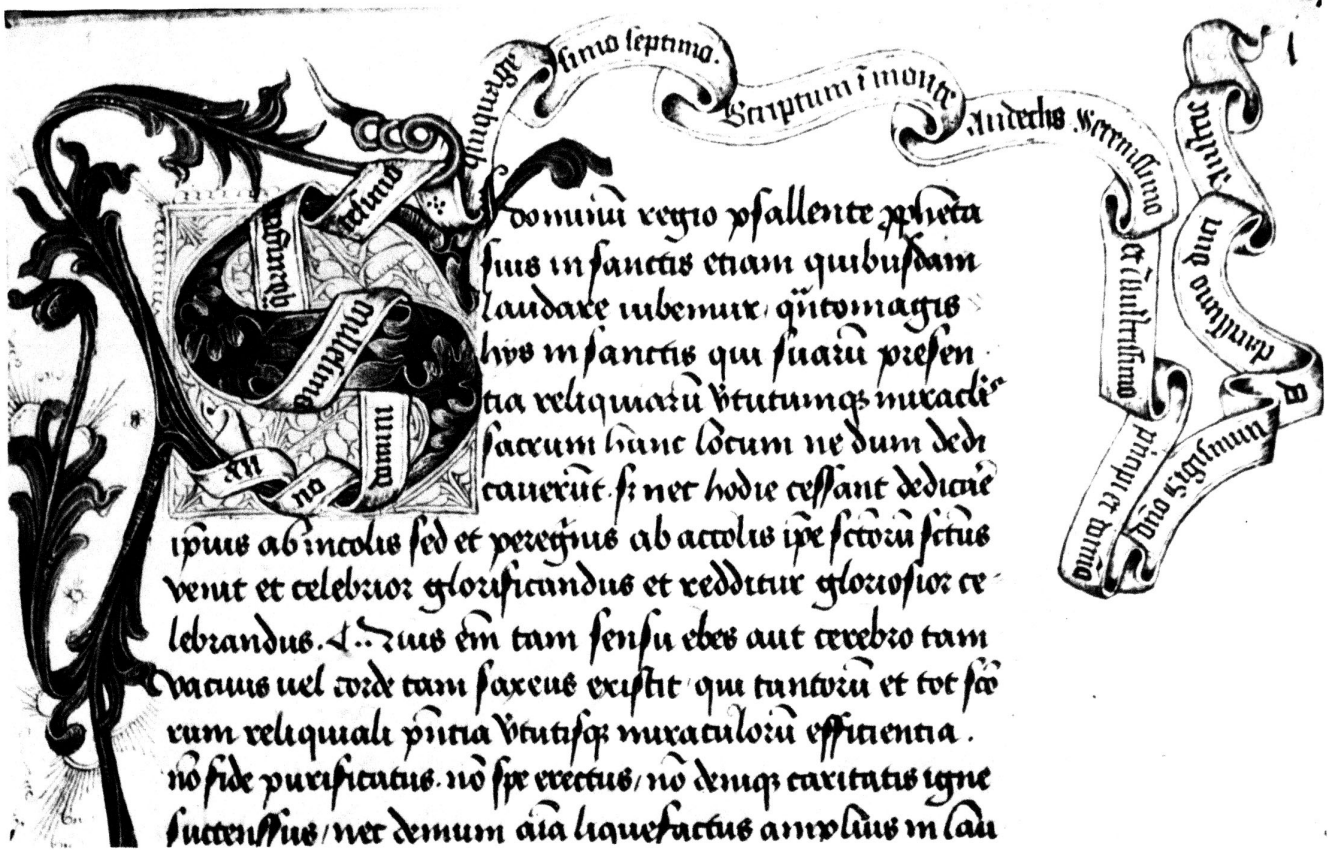 An
no
millesimo
quiquage
simo septimo.
Scriptum ī monte
Andechs Serenissimo
et illustrissimo
pͥncipi et dm̄o
dño Sigismun
clarissimo duci
austrie
i dominū regio psallente ꝓpheta
suis in sanctis etiam quibusdam
laudare iubemur, qn̄tomagis
hys in sanctis qui suarū presen
tia reliquiarū v̓tutumqꝫ miraclis
sacrum hunc locum ne dum dedi
cauerūt. sꝫ nec hodie cessant
ip̄ius ab incolis sed et peregͥnis ab accolis ip̄e sctōrū sctūs
venit et celebrior glorificandus et redditur gloriosior ce-
lebrandus. Quis em̄ tam sensu ebes aut cerebro tam
vacuus uel corde tam saxeus existit, qui tantorū et tot scō
rum reliquiali pn̄tia v̓tutisqꝫ miraculorū efficientia.
nō fide purificatus. nō spe erectus, nō deniqꝫ caritatis igne
succenssus, nec demum aīa liquefactus amplius in lau